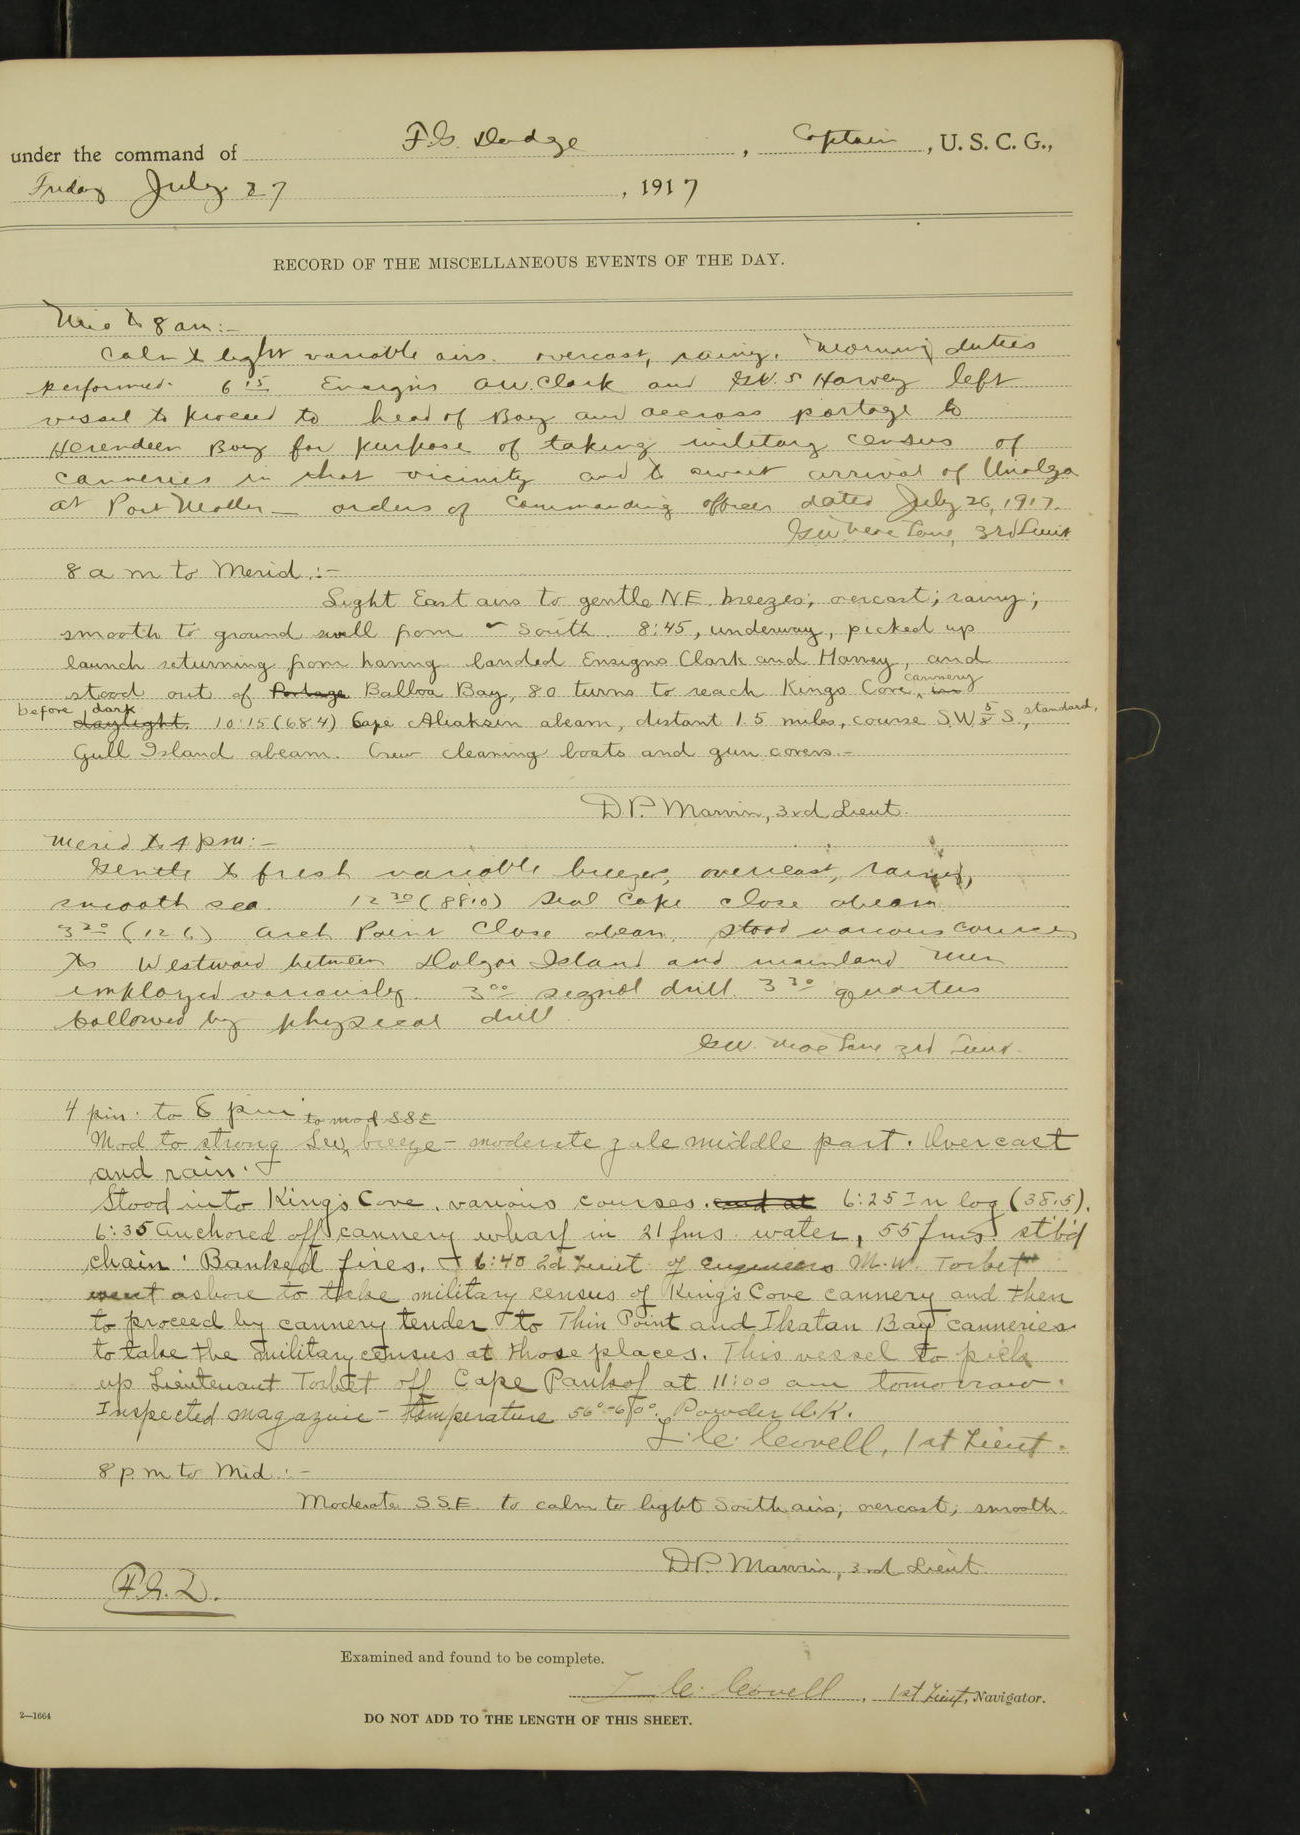 under the command of F.G. Dodge, Captain, U. S. C. G.,
Friday July 27, 1917
RECORD OF THE MISCELLANEOUS EVENTS OF THE DAY.
Mid to 8 am:-
Calm to light variable airs. overcast, rainy. Morning duties
performed. 6 15 Ensigns A.W. Clark and G.W. S Harvey left
vessel to proceed to head of Bay and accross portage to
Herendeen Bay for purpose of taking military census of
canneries in that vicinity and to await arrival of Unalga
at Port Moller — orders of Commanding officer dated July 26, 1917.
G.W. MacLane, 3rd Lieut
8 a m to Merid.:-
Light East airs to gentle N.E. breezes; overcast; rainy;
smooth to ground swell from South. 8:45, underway, picked up
launch returning from having landed Ensigns Clark and Harvey, and
stood out of Portage Balboa Bay, 80 turns to reach Kings Cove cannery, in
before dark daylight. 10:15 (68.4) Cape Aliaksin abeam, distant 1.5 miles, course S.W 5/8 S., standard,
Gull Island abeam. Crew cleaning boats and gun covers.-
D.P. Marvin, 3rd Lieut.
Merid to 4 pm:-
Gentle to fresh variable breezes, overcast, rainy,
smooth sea. 12 30 (88.0) Seal Cape close abeam
3 20 (12.6) Arch Point Close abeam. Stood various courses
to Westward between Dolgoi Island and mainland Men
employed variously. 3 00 signal drill. 3 30 quarters
followed by physical drill.
G.W. MacLane 3rd Lieut.
4 pm. to 8 pm
to mod SSE
Mod to strong breeze - moderate gale middle part. Overcast
and rain.
Stood into King's Cove. various courses. and at 6:25 In log (38.5).
6:35 Anchored off cannery wharf in 21 fms water, 55 fms st'b'd
chain. Banked fires. - 6:40 2d Lieut of engineers M.W. Torbet
went ashore to take military census of King's Cove cannery and then
to proceed by cannery tender to Thin Point and Ikatan Bay canneries
to take the military census at those places. This vessel to pick
up Lieutenant Torbet off Cape Pankof at 11:00 am tomorrow.
Inspected magazine - temperature 56°-60°. Powder O.K.
L.C. Covell, 1st Lieut.
8 p.m to Mid:-
Moderate S.S.E. to calm to light South airs; overcast; smooth
D.P. Marvin, 3rd Lieut.
F.G.D.
Examined and found to be complete.
L.C. Covell, 1st Lieut, Navigator.
2—1664
DO NOT ADD TO THE LENGTH OF THIS SHEET.